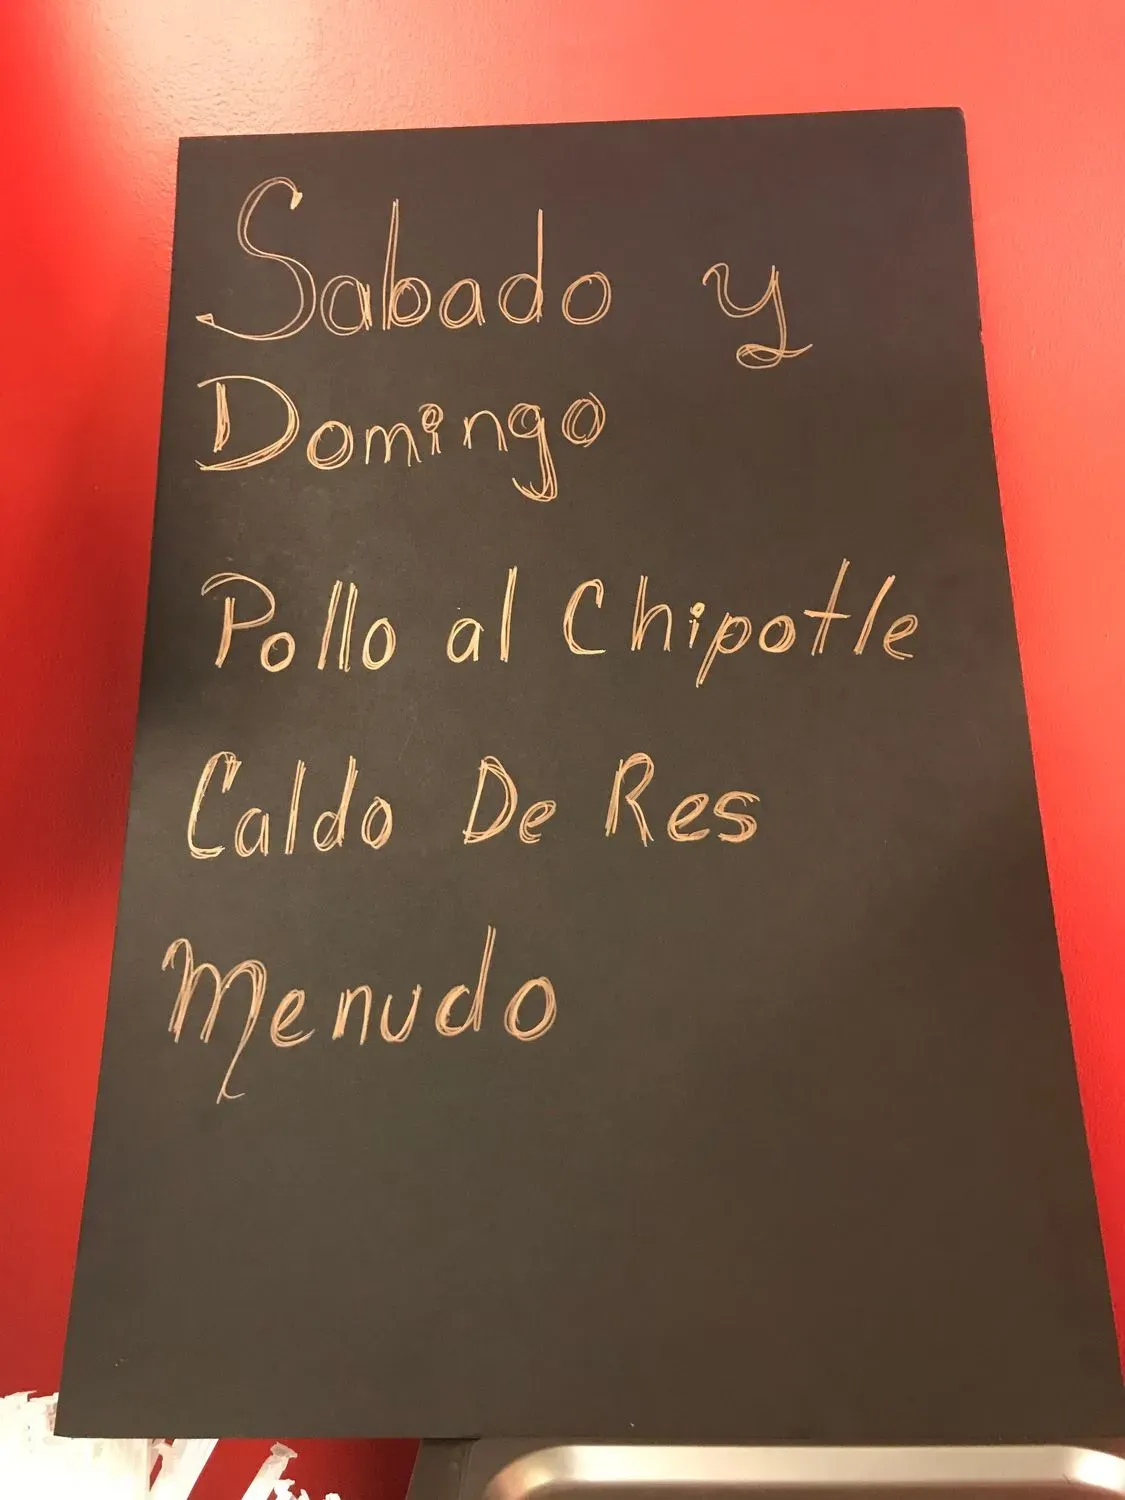 Sabado y
Domingo
Pollo al Chipotle
Caldo De Res
Menudo